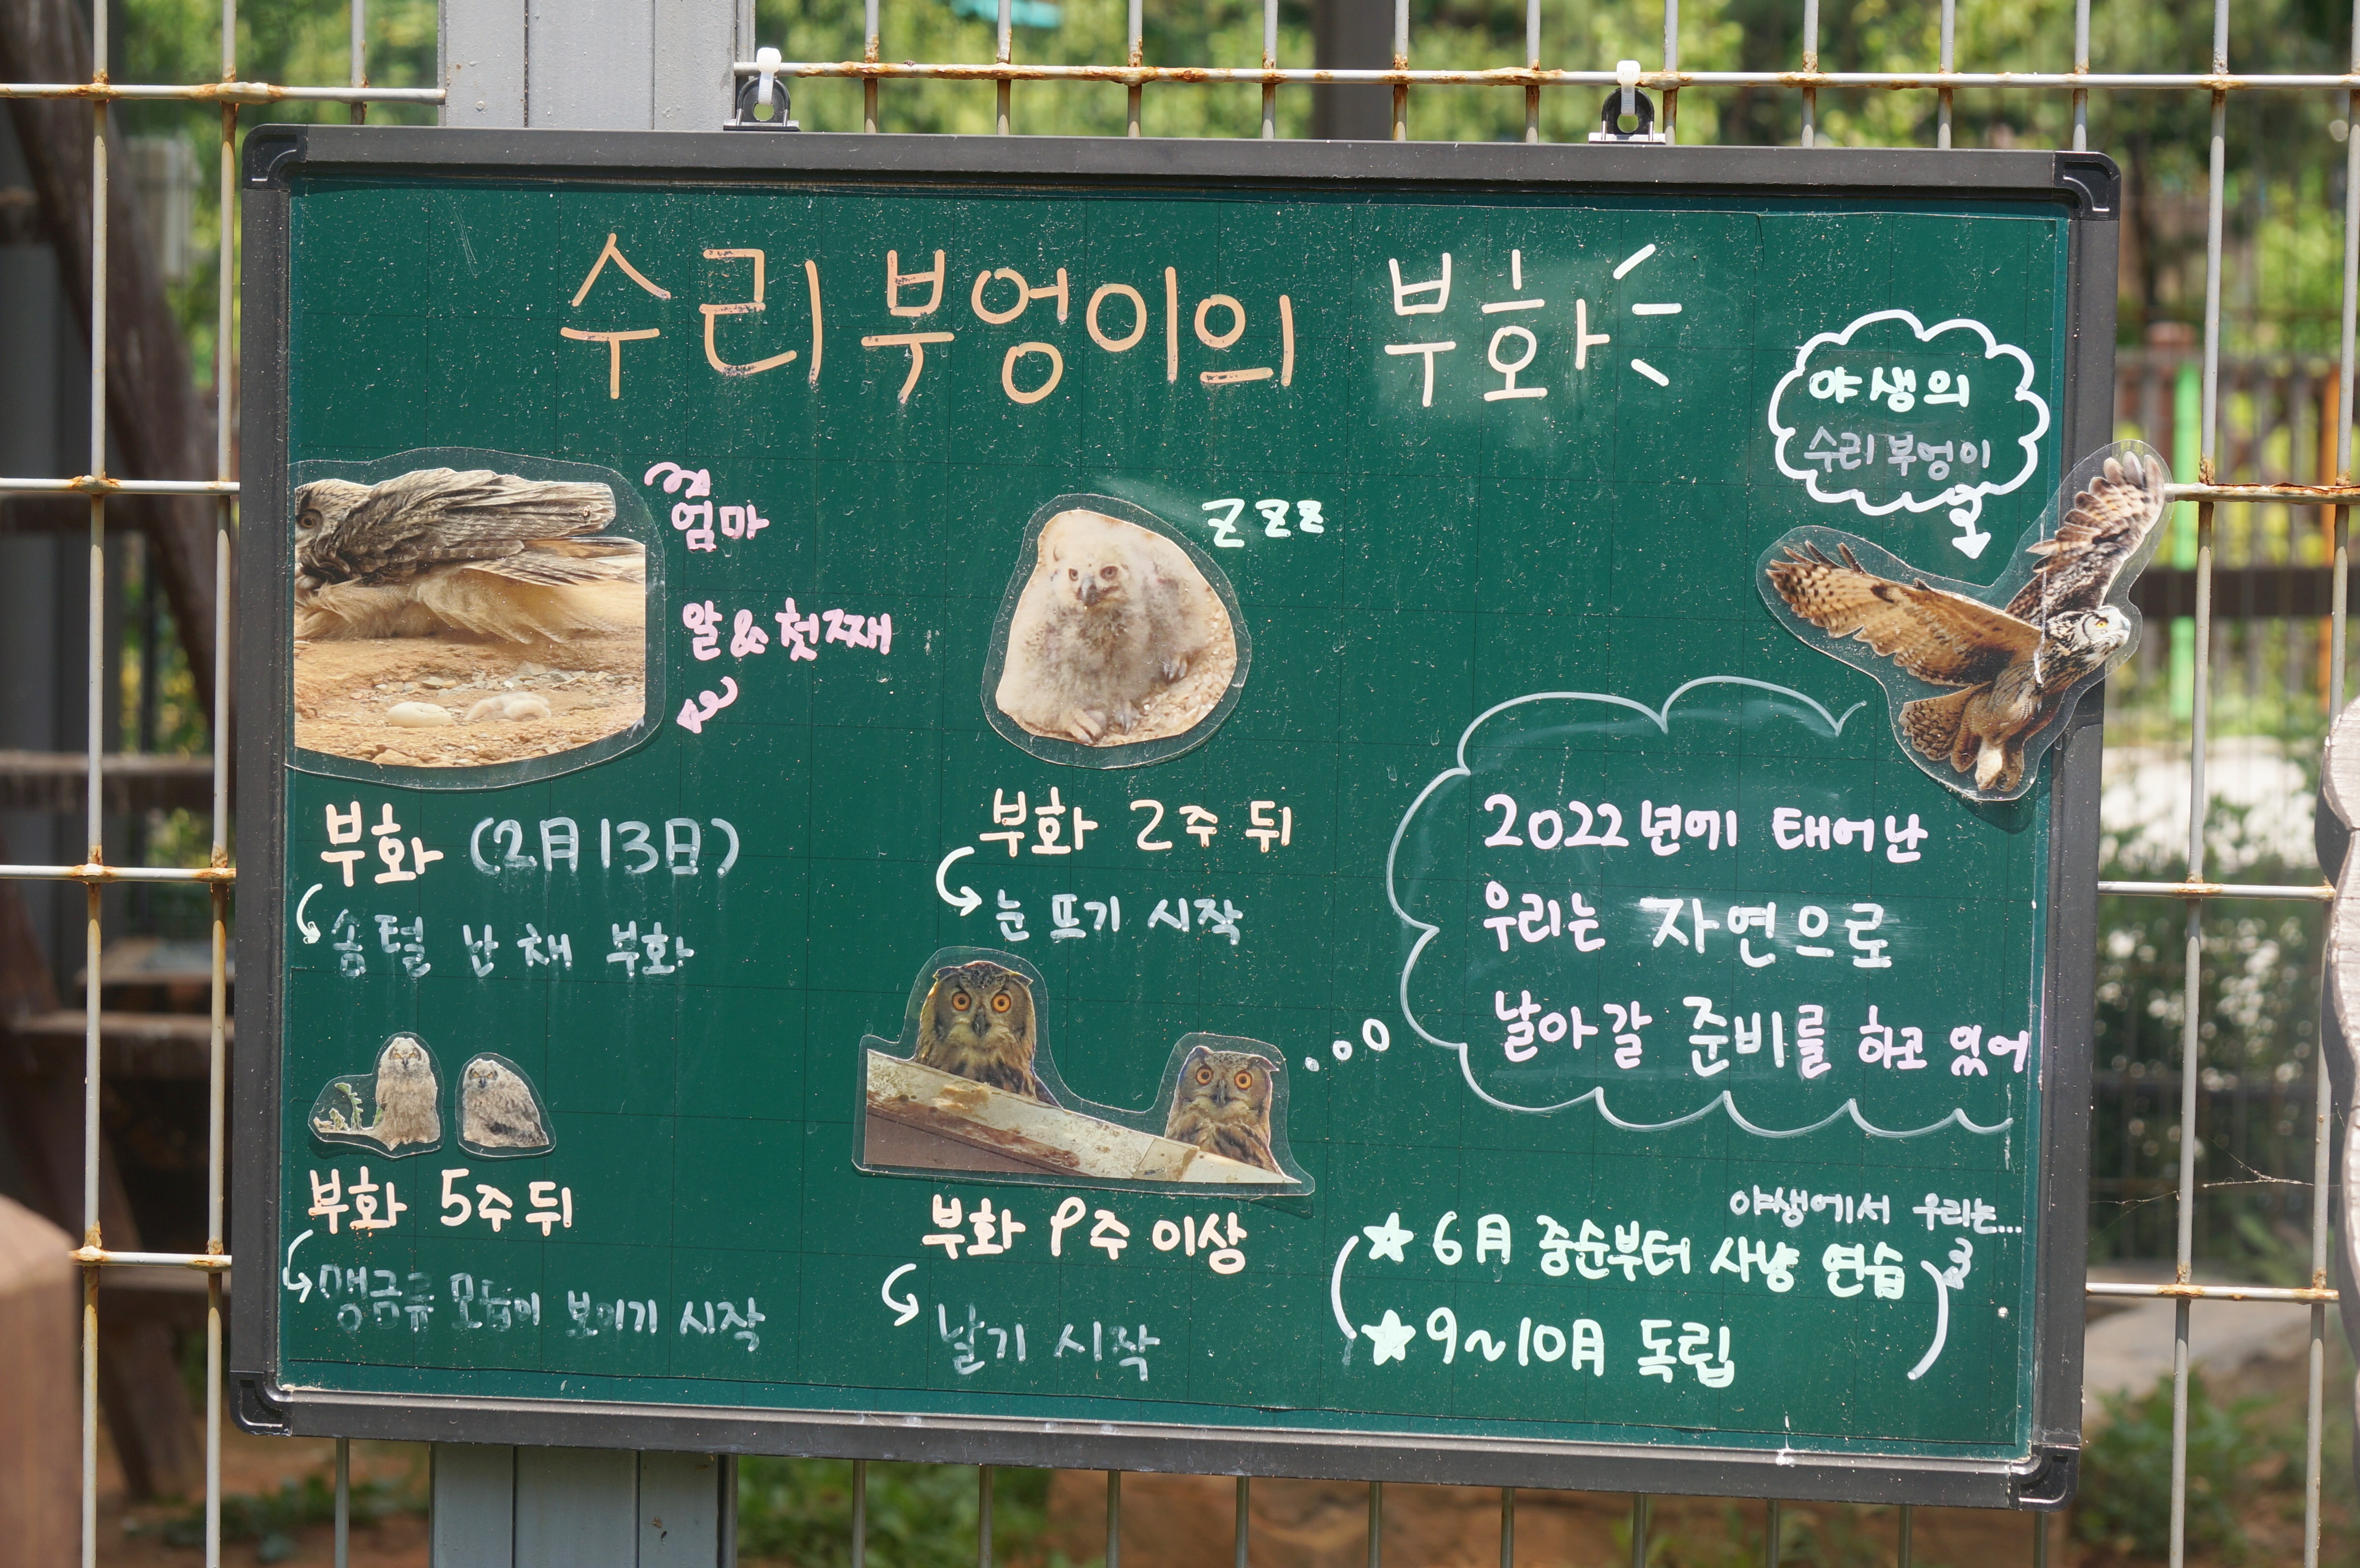 수리부엉이의 부화
야생의
수리부엉이
엄마
알 & 첫째
zzz
부화 (2月 13日)
솜털 난 채 부화
부화 2주 뒤
눈 뜨기 시작
2022년에 태어난
우리는 자연으로
날아갈 준비를 하고 있어
부화 5주 뒤
맹금류 모습이 보이기 시작
부화 9주 이상
날기 시작
야생에서 우리는...
★ 6月 중순부터 사냥 연습
★ 9~10月 독립